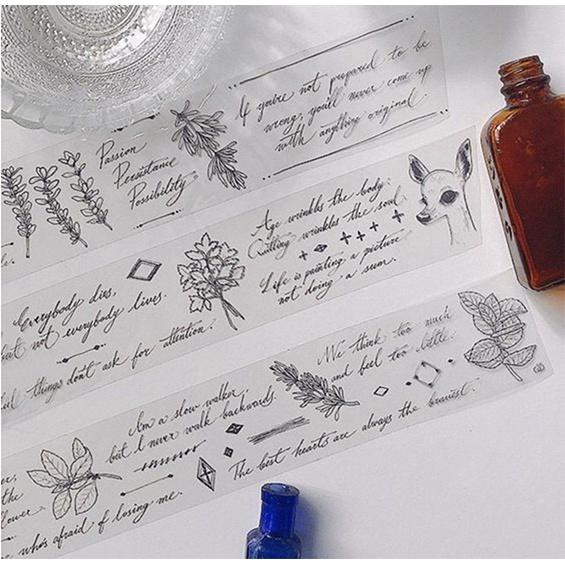 Passion
Persistance
Possibility.
If you're not prepared to be
wrong, you'll never come up
with anything original.
Everybody dies,
but not everybody lives.
things don't ask for attention.
Age wrinkles the body.
Quitting wrinkles the soul.
Life is painting a picture,
not doing a sum.
the
flower
who's afraid of losing me.
I'm a slow walker,
but I never walk backwards.
We think too much
and feel too little.
The best hearts are always the bravest.